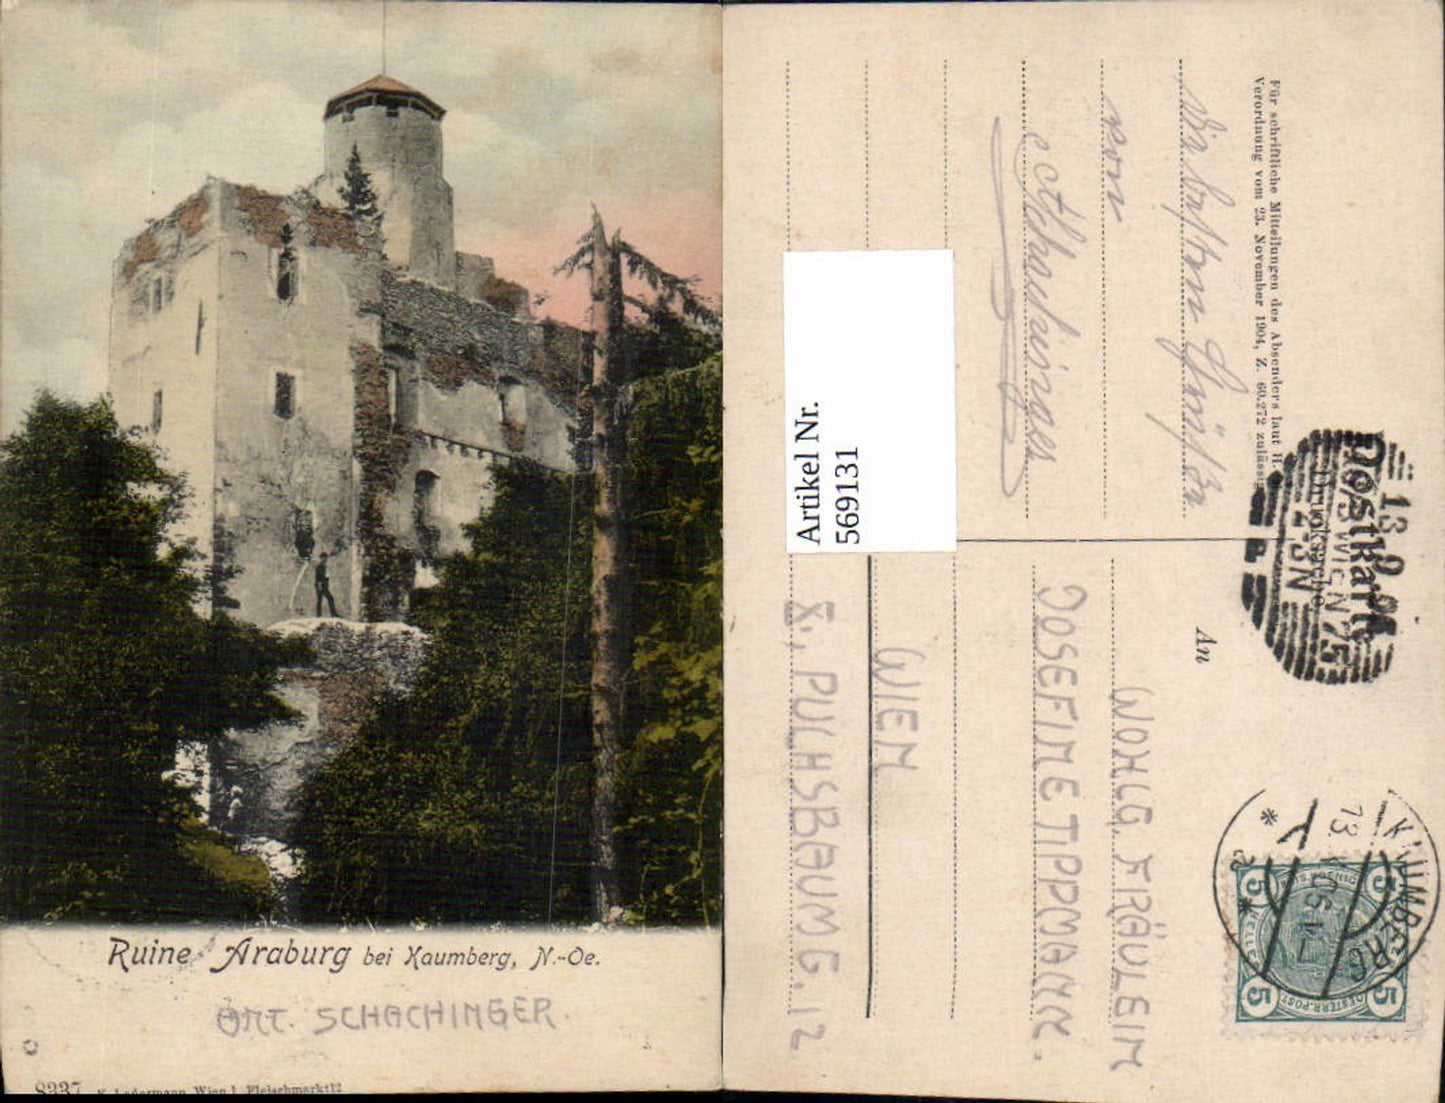 Ruine Araburg bei Kaumberg, N.-Oe.
ANT. SCHACHINGER.
8337 K. Ledermann, Wien I. Fleischmarkt 12
Für schriftliche Mitteilungen des Absenders laut
Verordnung vom 23. November 1904, Z. 60.272 zulässig
Die besten Grüße
von
Artikel Nr.
569131
Postkarte
Drucksache
WIEN 75
An
WOHLG. FRÄULEIN
JOSEFINE TIPPMANN.
WIEN
X., PUCHSBAUMG. 12
KAUMBERG
5 5
5 5
OESTERR. POST